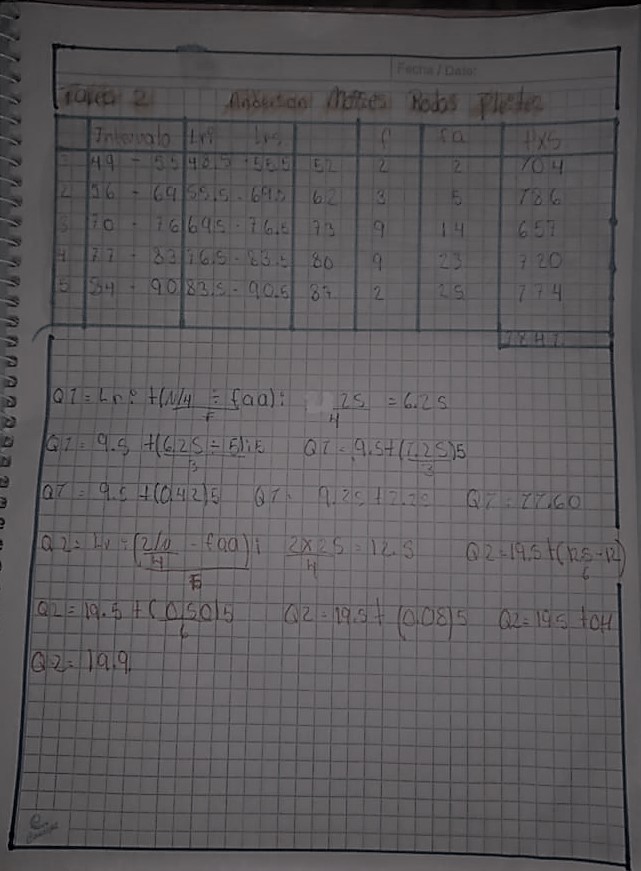 Fecha / Date:
Tarea 2 Anderson Moises Rodas
Intervalo Lri Lrs f fa fixs
49 - 55 48.5 - 55.5 52 2 2 704
2 56 - 69 55.5 - 69.5 62 3 5 786
3 70 - 76 69.5 - 76.5 73 9 14 657
4 77 - 83 76.5 - 83.5 80 9 23 720
5 84 - 90 83.5 - 90.5 87 2 25 774
Q1 = Lri + (N/4 - faa) i 25/4 = 6.25
Q1 = 9.5 + (6.25 - 5) i 5 / 3 Q1 = 9.5 + (1.25) 5 / 3
Q1 = 9.5 + (0.42) 5 Q1 =
Q2 = Lr (2/N / 4 - faa) i / F 2x25 / 4 = 12.5 Q2 = 19.5 + (12.5 - 12) / 6
Q2 = 19.5 + (0.50) 5 / 6 Q2 = 19.5 + (0.08) 5 Q2 = 19.5 + 0.4
Q2 = 19.9